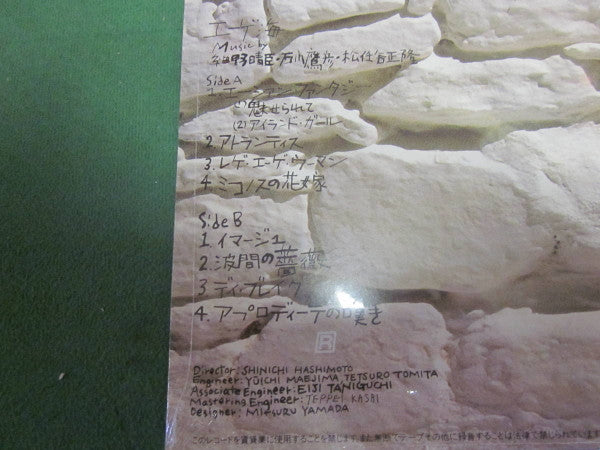 エーゲ海
Music by
細野晴臣・石川鷹彦・松任谷正隆
Side A
1. エーゲアン・ファンタジー
(1) 魅せられて
(2) アイランド・ガール
2. アトランティス
3. レゲ・エーゲ・ウーマン
4. ミコノスの花嫁
Side B
1. イマージュ
2. 波間の薔薇
3 デイ・ブレイク
4. アプロディーテの嘆き
R
Director: SHINICHI HASHIMOTO
Engineer: YUICHI MAEJIMA, TETSURO TOMITA
Associate Engineer: EIJI TANIGUCHI
Mastering Engineer: TEPPEI KASAI
Designer: MITSURU YAMADA
このレコードを賃貸業に使用することを禁じます。また無断でテープその他に録音することは法律で禁じられています